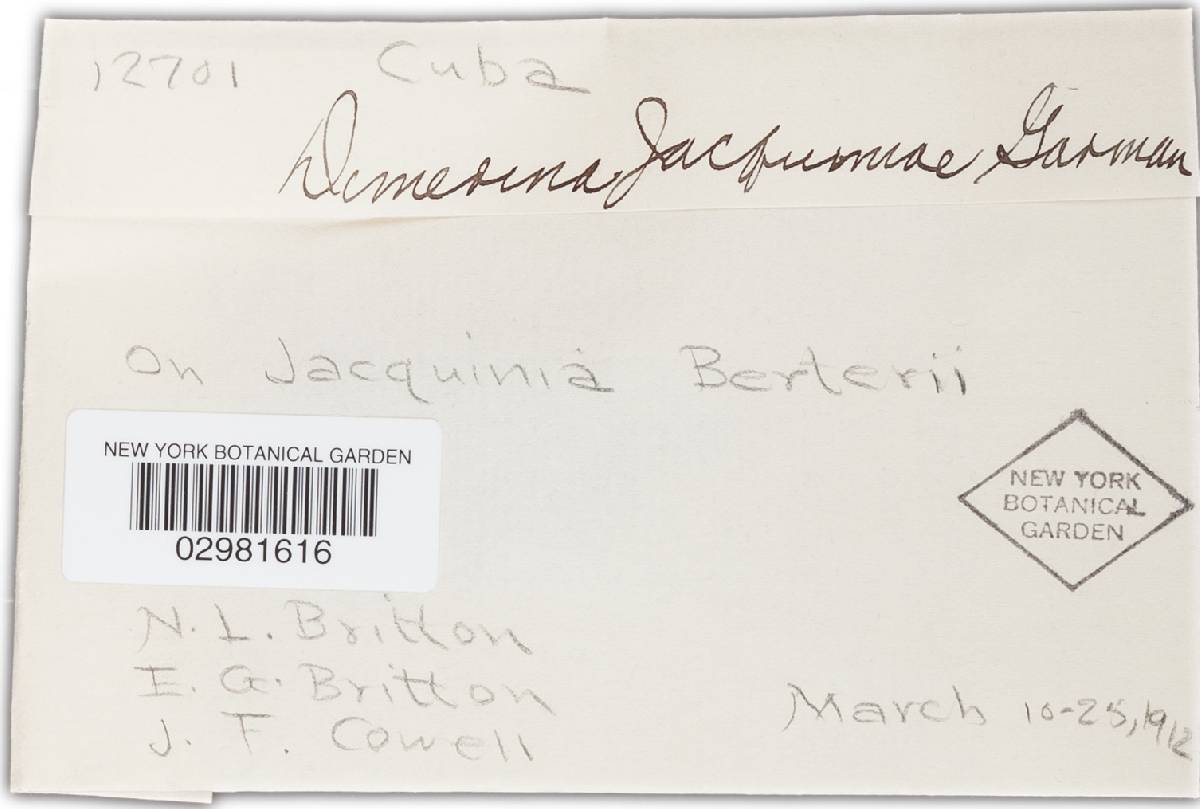 12701 Cuba
Dimerina Jacquiniae Garman
On Jacquinia Berterii
NEW YORK BOTANICAL GARDEN
02981616
NEW YORK
BOTANICAL
GARDEN
N. L. Britton
E. G. Britton
J. F. Cowell
March 10-25, 1912